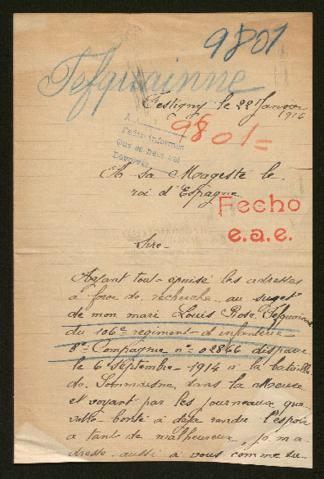 9801
Tefquainne
Cestigny le 22 Janvier
1916
9801=
A sa Magesté le
roi d'Espagne
Fecho
e.a.e.
Sire
Ayant tout épuisé les adresses
à force de recherche au suget
de mon mari Louis Rose Tefquainne
du 106e regiment d'infanterie
8e Compagnie n° 02866 disparu
le 6 Septembre 1914 à la bataille
de Sommaisne, dans la Meuse
et voyant par les journeaux que
votre bonté a déja rendu l'espoir
a tant de malheureux, je m'a
dresse aussi a vous comme su-